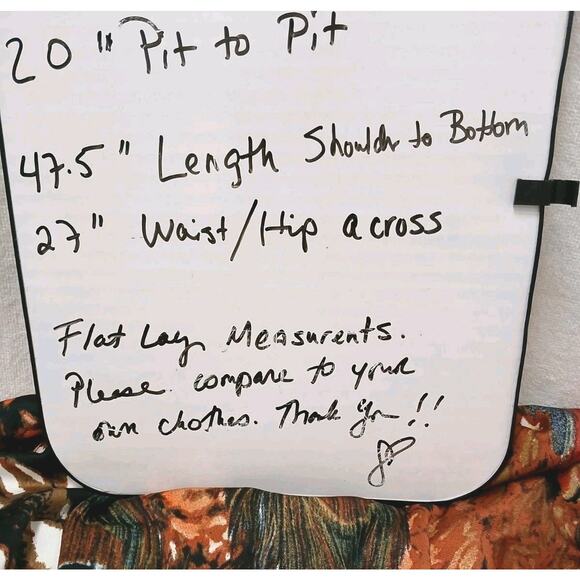 20" Pit to Pit
47.5" Length Shouldr to Bottom
27" Waist/Hip across
Flat Lay Measurents.
Please compare to your
own clothes. Thank You!!